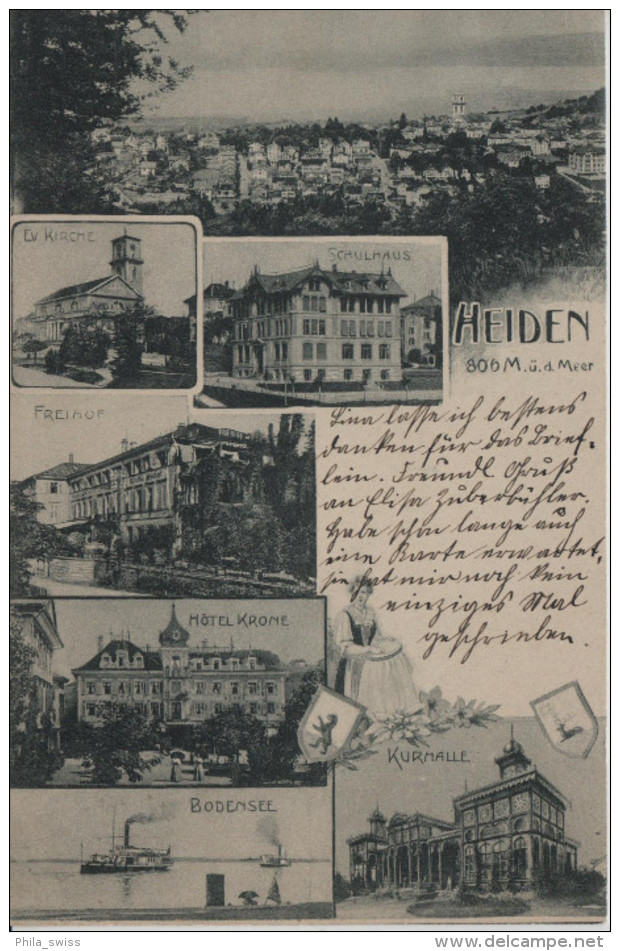 Ev. Kirche
Schulhaus
Heiden
806 M. ü. d. Meer
Freihof
Lina lasse ich bestens
danken für das Brief-
lein. Freundl Gruß
an Elisa Zuberbühler.
Habe schon lange auch
eine Karte erwartet,
sie hat mir noch kein
einziges Mal
geschrieben.
Hôtel Krone
Kurhalle
Bodensee
Phila_swiss
www.delcampe.net